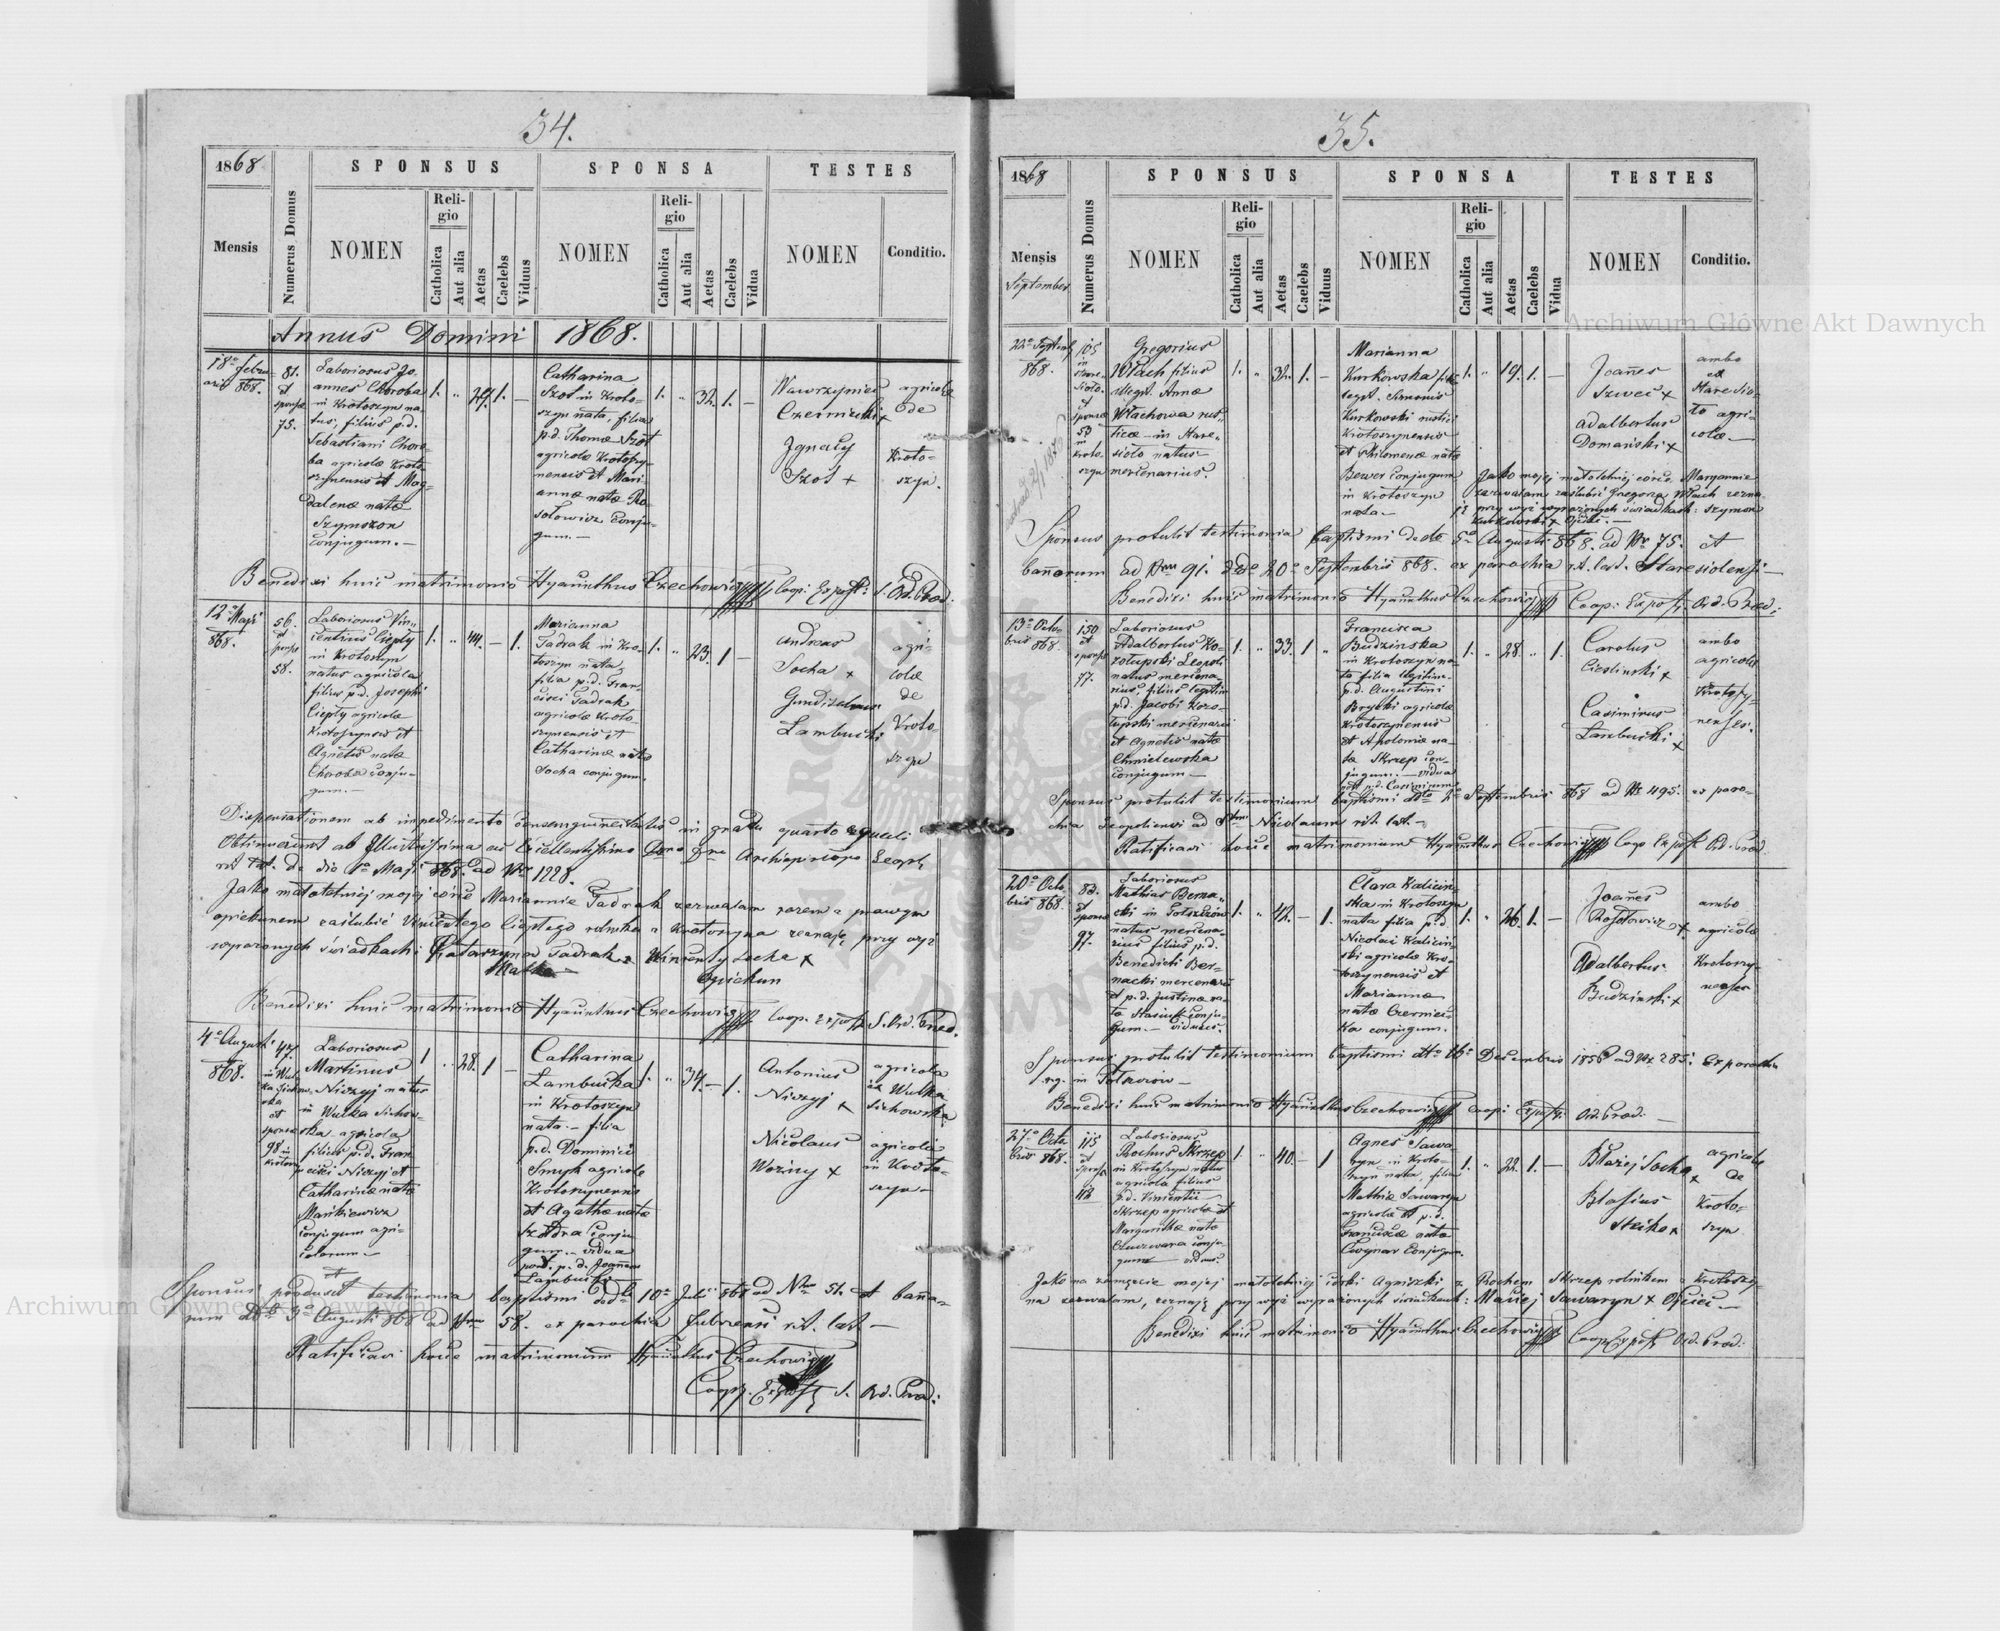 34.
1868
Mensis
Numerus Domus
SPONSUS
NOMEN
Religio
Catholica
Aut alia
Aetas
Caelebs
Viduus
SPONSA
NOMEN
Religio
Catholica
Aut alia
Aetas
Caelebs
Vidua
TESTES
NOMEN
Conditio.
Annus Domini 1868.
18a Febru-
arii 868.
81.
et
sponsæ
75.
Laboriosus Jo-
annes Choroba
in Krotoszyn na-
tus, filius p.d.
Sebastiani Choro-
ba agricolæ Kroto-
szynensis et Mag-
dalenæ natæ
Szymszon
conjugum.—
1. " 29. 1. —
Catharina
Szot in Kroto-
szyn nata, filia
p.d. Thomæ Szot
agricolæ Krotoszy-
nensis et Mari-
annæ natæ Ro-
sołowicz conju-
gum.—
1. " 32. 1. —
Wawrzyniec
Czernicki x
Ignacy
Szot +
agricolæ
de
Kroto-
szyn.
Benedixi huic matrimonio Hyacinthus Czechowicz Coop: Expos: S. Ord. Præd.
12a Maji
868.
56.
et
sponsæ
58.
Laboriosus Vin-
centius Ciepły
in Krotoszyn
natus agricola
filius p.d. Josephi
Ciepły agricolæ
Krotoszynensis et
Agnetis natæ
Choroba conju-
gum.—
1. " 44. — 1.
Marianna
Fadrak in Kro-
toszyn nata,
filia p.d. Fran-
cisci Fadrak
agricolæ Kroto-
szynensis et
Catharinæ natæ
Socha conjugum.
1. " 23. 1 —
Andreas
Socha x
Gundisalvus
Lambucki
agri-
colæ
de
Kroto-
szyn
Dispensationem ab impedimento consanguineitatis in gradu quarto æquali
Obtinuerunt ab Illustrissimo ac Excellentissimo Dno Dno Archiepiscopo Leopl.
rit. lat. de dto 1a Maji 868. ad Nr 1228.
Jako małoletniej mojej córce Mariannie Fadrak zezwalam razem z prawym
opiekunem zaślubić Vincentego Ciepłego rolnika z Krotoszyna zeznaję przy wyż
wyrażonych świadkach: Katarzyna Fadrak x Wincenty Socha x
Matka Opiekun
Benedixi huic matrimonio Hyacinthus Czechowicz Coop. Expos: S. Ord. Præd.
4a Augusti
868.
47.
in Wul-
ka Sichow-
ska
et
sponsæ
98 in
Krotoszyn
Laboriosus
Martinus
Niczyj natus
in Wulka Sichow-
ska agricola
filius p.d. Fran-
cisci Niczyj et
Catharinæ natæ
Mańkiewicz
conjugum agri-
colarum.—
1 " 28. 1 —
Catharina
Lambucka
in Krotoszyn
nata.— filia
p.d. Dominici
Smyk agricolæ
Krotoszynensis
et Agathæ natæ
Szadra conju-
gum.— vidua
post. p.d. Joannem
Lambucki.—
1. " 34. — 1.
Antonius
Niczyj x
Nicolaus
Woźny x
agricola
ex Wulka
Sichowska
agricola
in Kroto-
szyn—
Sponsus produxit testimonia baptismi ddto 10a Julii 868 ad Nrm 51. et banno-
rum ddto 3a Augusti 868 ad Nrm 58. ex parochia Zubrensi rit. lat.—
Ratificavi hocce matrimonium Hyacinthus Czechowicz
Coop. Expos: S. Ord. Præd:
35.
1868
Mensis
September
Numerus Domus
SPONSUS
NOMEN
Religio
Catholica
Aut alia
Aetas
Caelebs
Viduus
SPONSA
NOMEN
Religio
Catholica
Aut alia
Aetas
Caelebs
Vidua
TESTES
NOMEN
Conditio.
22a Septemb
868.
105
in
Stare-
sioło.
et
sponsæ
53
in
Kroto-
szyn
Gregorius
Włach filius
illegit. Annæ
Włachowa rus-
ticæ — in Stare-
sioło natus
mercenarius.
1. " 32. 1. —
Marianna
Kurkowska filia
legit. Simonis
Kurkowski rustici
Krotoszynensis
et Philomenæ natæ
Bower conjugum
in Krotoszyn
nata.—
1. " 19. 1. —
Joannes
Szweć x
Adalbertus
Domański x
ambo
ex
Staresio-
ło agri-
colæ.—
Jako mojej małoletniej córce Maryannie
zezwalam zaślubić Grzegorza Włach zezna-
ję przy wyż wyrażonych świadkach: Szymon
Kurkowski x Ojciec.—
Sponsus protulit testimonia baptismi de dto 5a Augusti 868. ad Nr 75. et
bannorum ad Nrm 91. ddto 20a Septembris 868. ex parochia rit. lat. Staresiolensi—
Benedixi huic matrimonio Hyacinthus Czechowicz Coop: Expos: Ord. Præd:
13a Octo-
bris 868.
150
et
sponsæ
77.
Laboriosus
Adalbertus Ko-
zołupski Leopoli
natus mercena-
rius, filius legitim.
p.d. Jacobi Kozo-
łupski mercenarii
et Agnetis natæ
Chmielewska
conjugum—
1. " 33. 1 "
Francisca
Budzinska
in Krotoszyn na-
ta filia legitima
p.d. Augustini
Brycki agricolæ
Krotoszynensis
et Apoloniæ na-
tæ Skrzep con-
jugum.— vidua
post p.d. Casimirum
1. " 28. " 1.
Carolus
Cieslinski x
Casimirus
Lambucki x
ambo
agricolæ
Krotoszy-
nenses.
Sponsus protulit testimonium baptismi ddto 2a Septembris 868 ad Nr 495. ex paro-
chia Leopoliensi ad Stum Nicolaum rit. lat.—
Ratificavi hocce matrimonium Hyacinthus Czechowicz Coop Expos: Ord. Præd.
20a Octo-
bris 868.
83.
et
sponsæ
97.
Laboriosus
Mathias Berna-
cki in Tołszczów
natus mercena-
rius filius p.d.
Benedicti Ber-
nacki mercenarii
et p.d. Justinæ na-
tæ Stasiuk conju-
gum.— viduus.
1. " 42. — 1.
Clara Kalicin-
ska in Krotoszyn
nata filia p.d.
Nicolai Kalicin-
ski agricolæ Kro-
toszynensis et
Mariannæ
natæ Czernic-
ka conjugum.
1. " 26. 1. —
Joannes
Rosołowicz x
Adalbertus
Budzinski x
ambo
agricolæ
Krotoszy-
nenses
Sponsus protulit testimonium baptismi ddto 16a Decembris 1856 ad Nr 285: ex parochia
rg. in Tołszczów—
Benedixi huic matrimonio Hyacinthus Czechowicz Coop: Expos: Ord. Præd:—
27a Octo
bris 868.
115
et
sponsæ
112
Laboriosus
Rochus Skrzep
in Krotoszyn natus
agricola filius
p.d. Vincentii
Skrzep agricolæ et
Margarithæ natæ
conju-
gum viduus
1. " 40. — 1
Agnes Sawa-
ryn in Kroto-
szyn nata, filia
Mathiæ Sawaryn
agricolæ et p.d.
Franciscæ natæ
Cwynar conjugum.
1. " 22. 1. —
Błażej Socha x
Blasius
Stećko x
agricolæ
de
Kroto-
szyn
Jako na zamęście mojej małoletniej córki Agnieszki z Rochem Skrzep rolnikem z Krotoszy-
na zezwalam, zeznaję przy wyż wyrażonych świadkach: Maciej Sawaryn x Ojciec—
Benedixi huic matrimonio Hyacinthus Czechowicz Coop Expos: Ord. Præd:
Archiwum Główne Akt Dawnych
Archiwum Główne Akt Dawnych